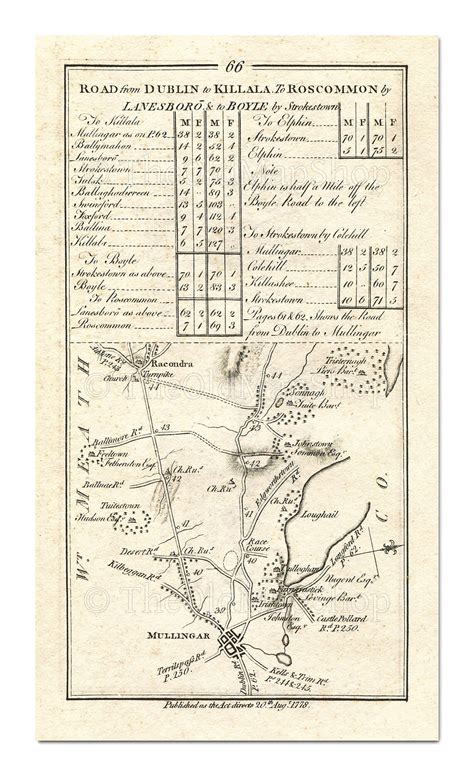 66
ROAD from DUBLIN to KILLALA, To ROSCOMMON by
LANESBORO, & to BOYLE by Strokestown
To Killala M F M F
Mullingar as on P. 62 38 2 38 2
Ballymahon 14 2 52 4
Lanesboro 9 6 62 2
Strokestown 7 7 70 1
Tulsk 5 2 75 3
Ballaghadirreen 14 89 3
Swineford 13 5 103
Foxford 9 4 112 1
Ballina 7 7 120 3
Killala 6 5 127
To Boyle
Strokestown as above 70 1 70 1
Boyle 13 2 83 3
To Roscommon
Lanesboro as above 62 2 62 2
Roscommon 7 1 69 3
To Elphin M F M F
Strokestown 70 1 70 1
Elphin 5 1 75 2
Note
Elphin is half a Mile off the
Boyle Road to the left
To Strokestown by Colehill
Mullingar 38 2 38 2
Colehill 12 5 50 7
Killasher 10 60 7
Strokestown 10 6 71 5
Pages 61 & 62, Shows the Road
from Dublin to Mullingar
Racondra
Church
Turnpike
44
44
Tristernagh
Piers Bar.t
Sonnagh
Tuite Bar.t
43
43
Ballimore R.d
Johnstown
Esq.r
Freltown
Fetherston Esq.r
42
42
Ch. Ru.s
Ch. Ru.s
Edgworthstown
R.d
Tuitestown
Hudson Esq.r
41
41
WT. MEATH
CO.
Loughail
Longford R.d
P. 62
Desert R.d
Ch. Ru.s
Race
Course
Kilbeggan R.d
40
Nugent Esq.r
Levinge Bar.t
Irishtown
Johnston
Esq.r
Castle Pollard
R.d P. 250.
39
MULLINGAR
Terrilspass R.d
P. 250.
Dublin R.d
P. 62.
Kells & Trim R.d
P. 244 & 245
Published as the Act directs 20th Aug.t 1778.